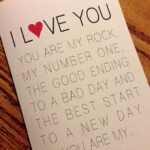 I L♥VE YOU
YOU ARE MY ROCK,
MY NUMBER ONE,
THE GOOD ENDING
TO A BAD DAY AND
THE BEST START
TO A NEW DAY
YOU ARE MY...